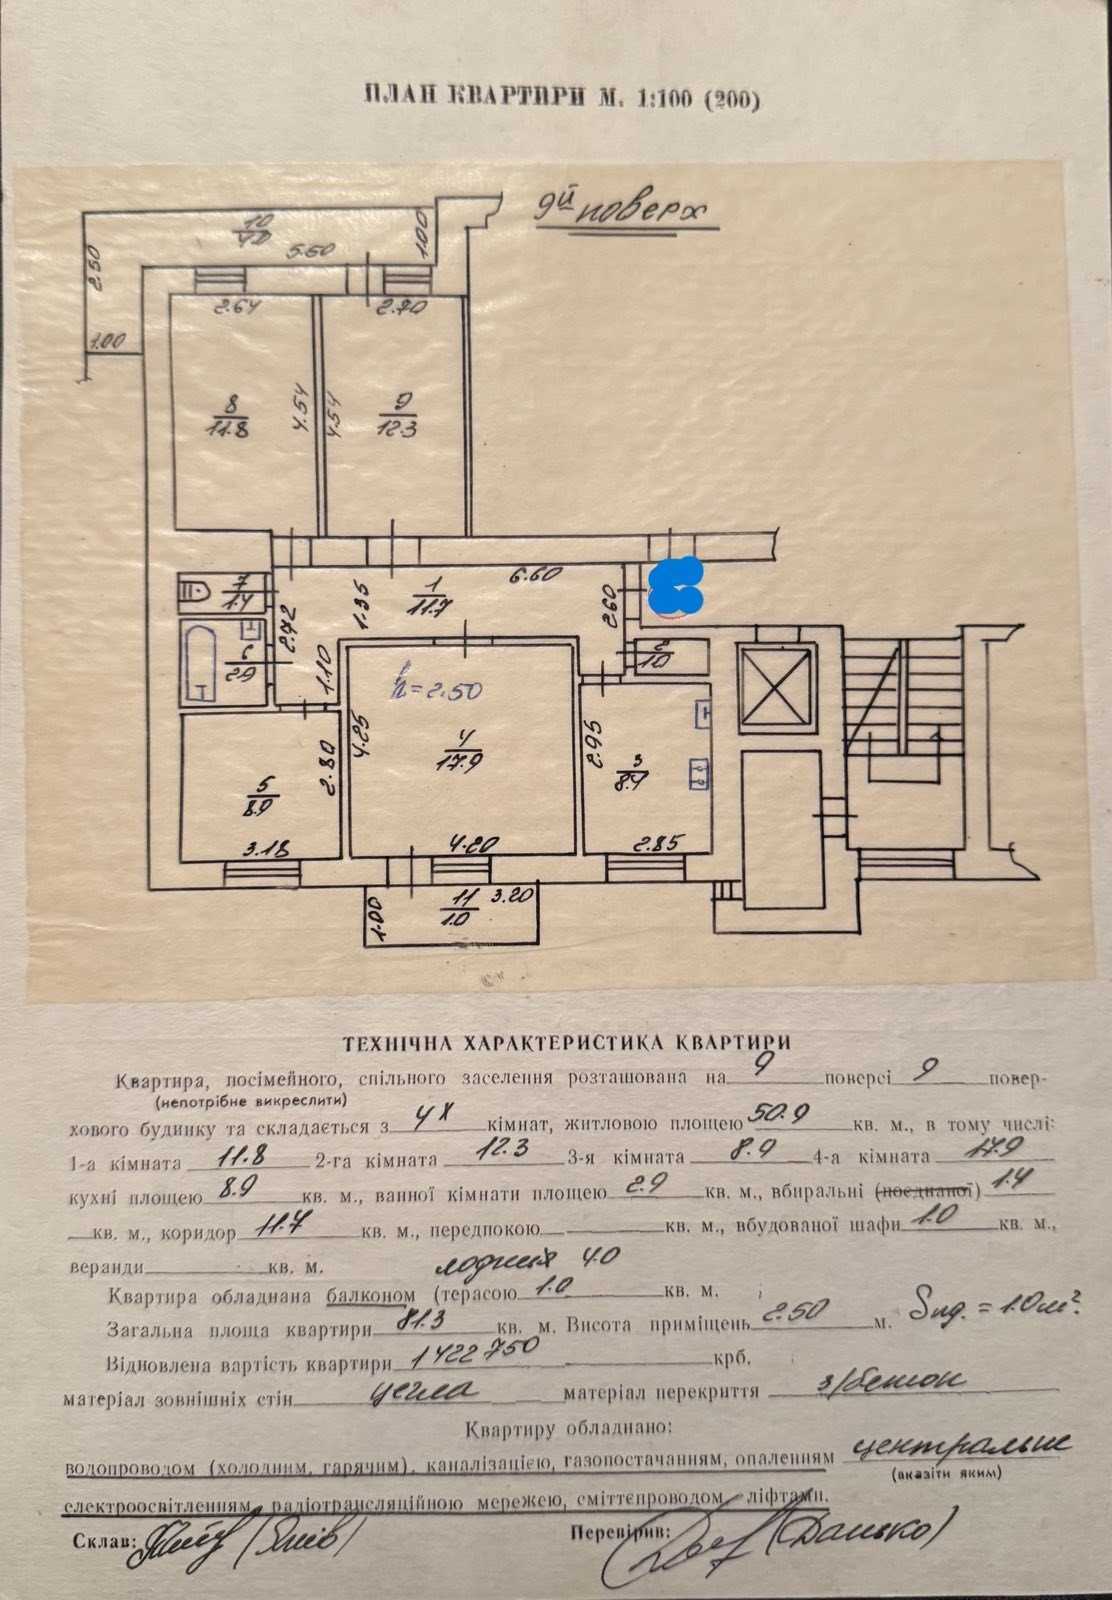 ПЛАН КВАРТИРИ М. 1:100 (200)
9й поверх
10
4.0
5.50
1.00
2.50
1.00
2.64
2.70
8
11.8
4.54
4.54
9
12.3
7
1.4
2.72
1.35
1
11.7
6.60
2.60
6
2.9
1.10
h=2.50
2
1.0
4.25
4
17.9
2.95
3
8.4
5
8.9
2.80
3.18
4.20
2.85
11
1.0
3.20
1.00
ТЕХНІЧНА ХАРАКТЕРИСТИКА КВАРТИРИ
Квартира, посімейного, спільного заселення розташована на 9 поверсі 9 повер-
(непотрібне викреслити)
хового будинку та складається з 4х кімнат, житловою площею 50.9 кв. м., в тому числі:
1-а кімната 11.8 2-га кімната 12.3 3-я кімната 8.9 4-а кімната 17.9
кухні площею 8.9 кв. м., ванної кімнати площею 2.9 кв. м., вбиральні (поєднаної) 1.4
кв. м., коридор 11.7 кв. м., передпокою кв. м., вбудованої шафи 1.0 кв. м.,
веранди кв. м. лоджія 4.0
Квартира обладнана балконом (терасою 1.0 кв. м.
Загальна площа квартири 81.3 кв. м. Висота приміщень 2.50 м. Sпд. = 1.0 м².
Відновлена вартість квартири 1422750 крб.
матеріал зовнішніх стін цегла матеріал перекриття з/бетон
Квартиру обладнано:
водопроводом (холодним, гарячим), каналізацією, газопостачанням, опаленням центральне
(вказіти яким)
електроосвітленням, радіотрансляційною мережею, сміттєпроводом ліфтами.
Склав: (Янів)
Перевірив: (Данько)